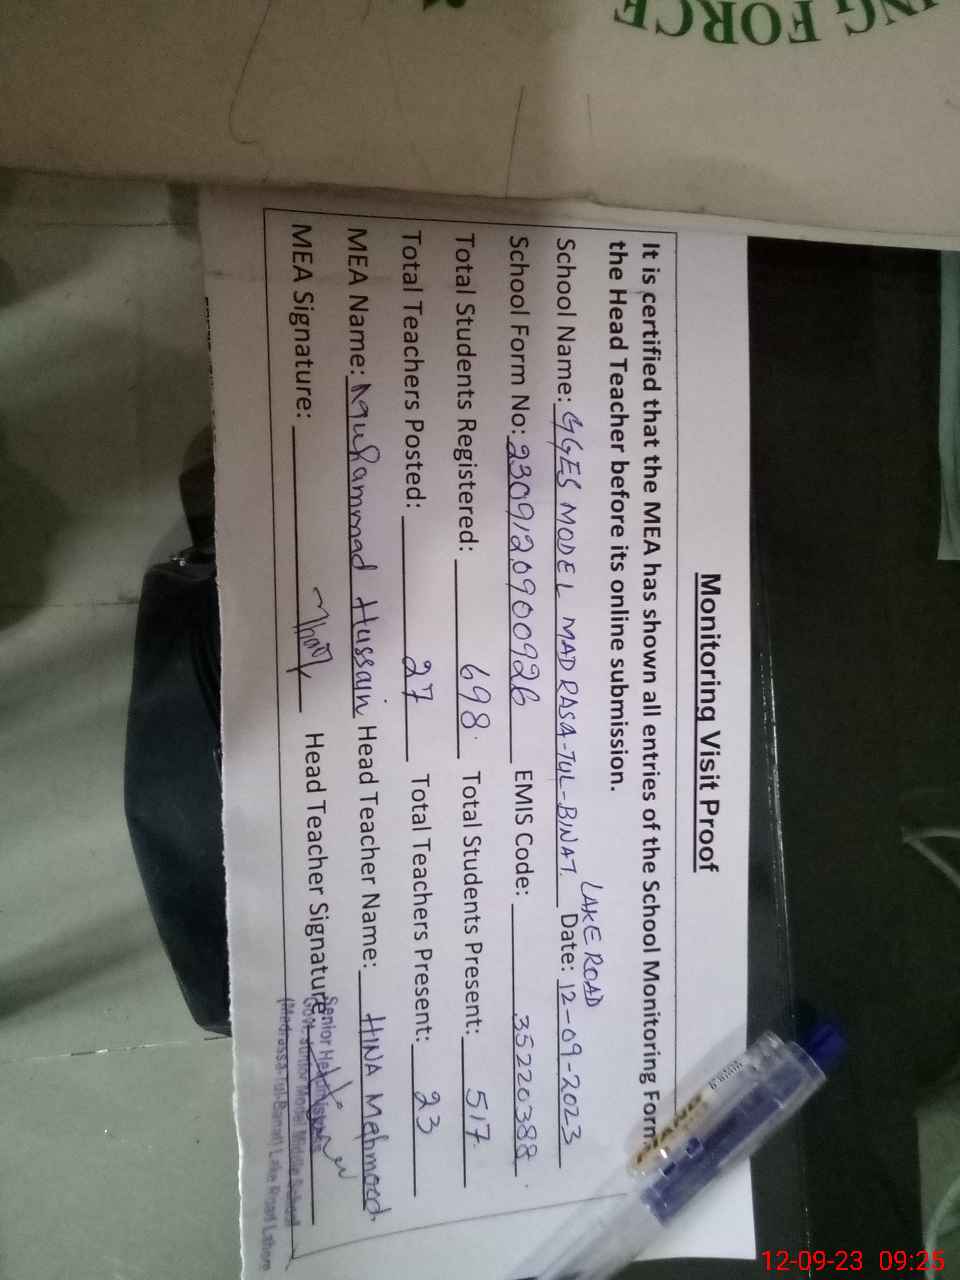 NG FORCE
Monitoring Visit Proof
It is certified that the MEA has shown all entries of the School Monitoring Form
the Head Teacher before its online submission.
LAKE ROAD
School Name: GGES MODEL MADRASA-TUL-BINAT. Date: 12-09-2023
School Form No: 2309120900926 EMIS Code: 35220388
Total Students Registered: 698 Total Students Present: 517
Total Teachers Posted: 27 Total Teachers Present: 23
MEA Name: Muhammad Hussain Head Teacher Name: HINA Mehmood
MEA Signature: Head Teacher Signature
Senior Headmistress
Govt. Junior Model Middle School
(Madrassa-tul-Banat) Lake Road Lahore
PIANO
12-09-23 09:25